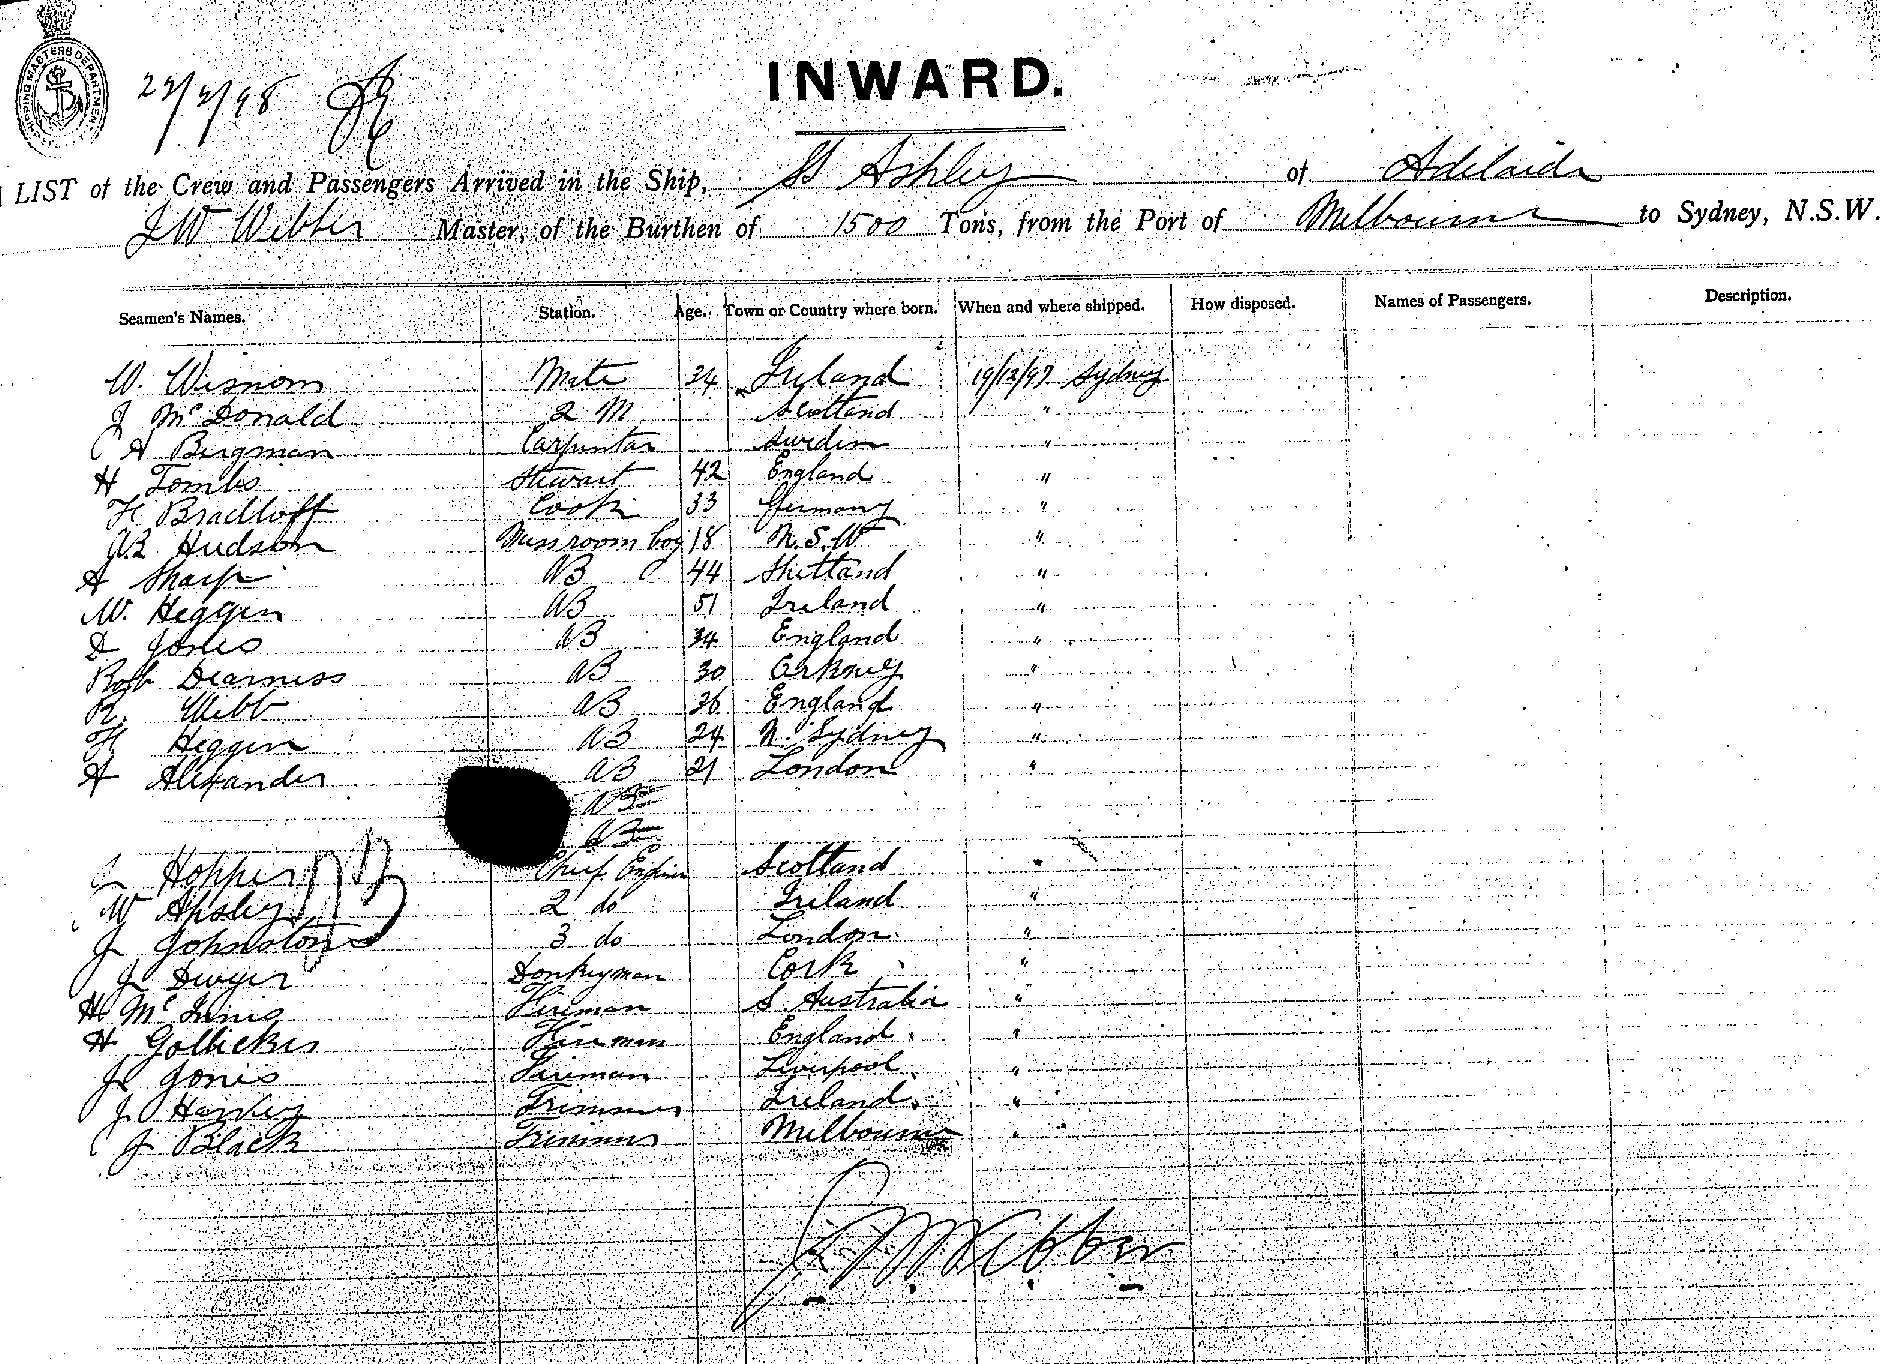 SHIPPING MASTERS DEPARTMENT
INWARD.
LIST of the Crew and Passengers Arrived in the Ship, SS Ashley of Adelaide
J W Webber Master, of the Burthen of 1500 Tons, from the Port of Melbourne to Sydney, N.S.W.
Seamen's Names. Station. Age. Town or Country where born. When and where shipped. How disposed. Names of Passengers. Description.
W. Wisnom Mate 34 Ireland 19/12/97 Sydney
J McDonald 2 M Scotland "
C A Bergman Carpenter Sweden "
H Tombs Stewart 42 England "
H Bradtloff Cook 33 Germany "
Hudson Messroom boy 18 N.S.W "
A Sharp AB 44 Shetland "
W. Heggen AB 51 Ireland "
D Jones AB 34 England "
Robt Dearness AB 30 Orkney "
R. Webb AB 26 England "
H Heggen AB 24 N. Sydney "
A Alexander AB 21 London "
AB
AB
Hopper Chief Engineer Scotland "
W Apsley 2 do Ireland "
J Johnston 3 do London "
J Dwyer Donkeyman Cork "
H McInnis Fireman S Australia "
H Gollickes Fireman England "
J Jones Fireman Liverpool "
J Harvey Trimmer Ireland "
J Black Trimmer Melbourne "
J. W. Webber